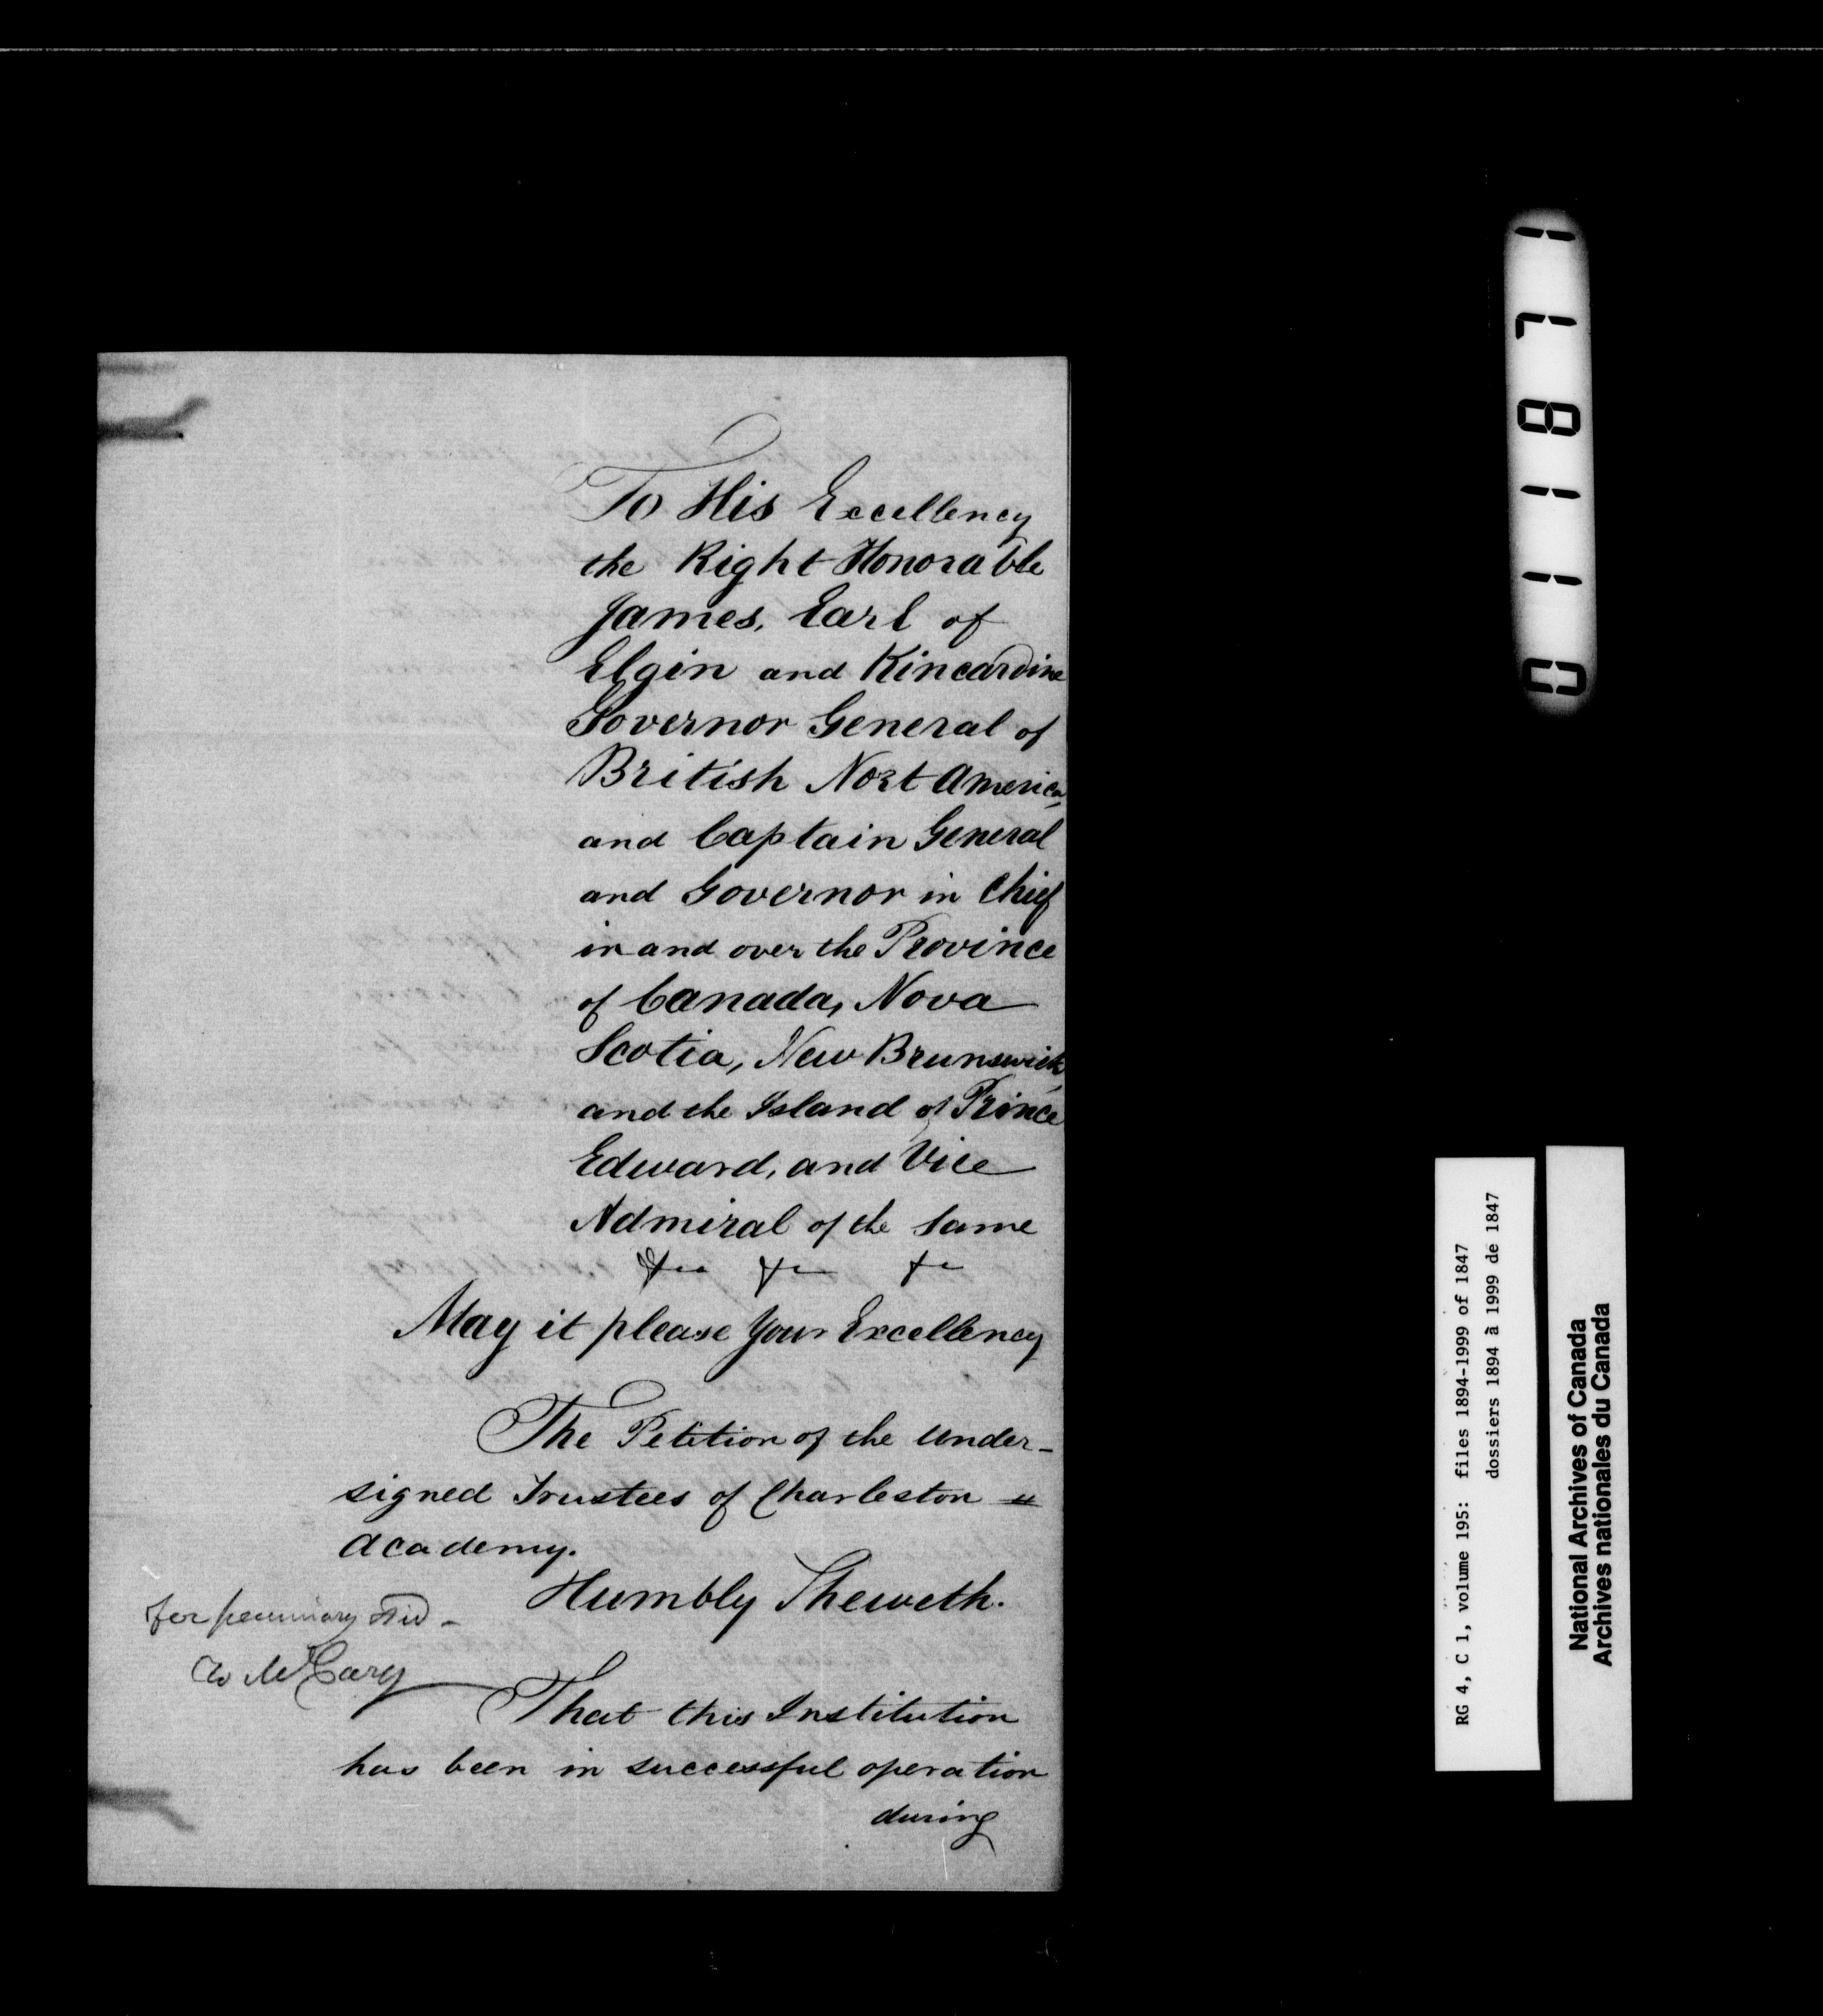 To His Excellency
the Right Honorable
James, Earl of
Elgin and Kincardine
Governor General of
British Nort America,
and Captain General
and Governor in Chief
in and over the Province
of Canada, Nova
Scotia, New Brunswick,
and the Island of Prince
Edward, and Vice
Admiral of the Same
&c &c &c
May it please Your Excellency
The Petition of the Under-
signed Trustees of Charleston
Academy.
Humbly Sheweth.
for pecuniary Aid -
To Mr Cary
That this Institution
has been in successful operation
during
011871
RG 4, C 1, volume 195: files 1894-1999 of 1847
dossiers 1894 à 1999 de 1847
National Archives of Canada
Archives nationales du Canada